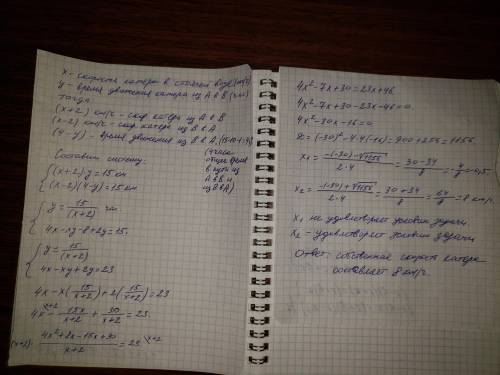 x - скорость катера в стоячей воде (км/ч)
y - время движения катера из A в B (час)
тогда
(x+2) км/с - скор катера из A в B
(x-2) км/с - скор. катера из B в A
(4-y) - время движения из B в A, (15-10-1=4)
(4 часа
общее время
в пути из
A в B и
из B в A)
Составим систему:
(x+2)y = 15 км
(x-2)(4-y) = 15 км
y = 15/(x+2) час
4x - xy - 8 + 2y = 15
y = 15/(x+2)
4x - xy + 2y = 23
4x - x(15/(x+2)) + 2(15/(x+2)) = 23
4x - 15x/(x+2) + 30/(x+2) = 23
(x+2)· (4x²+8x-15x+30)/(x+2) = 23
4x² - 7x + 30 = 23x + 46
4x² - 7x + 30 - 23x - 46 = 0
4x² - 30x - 16 = 0
D = (-30)² - 4·4(-16) = 900 + 256 = 1156
x₁ = (-(-30) - √1156)/(2·4) = (30-34)/8 =
x₂ = (-(-30) + √1156)/(2·4) = (30+34)/8 = 64/8 = 8 км/ч.
x₁ не удовлетворяет условию задачи
x₂ - удовлетворяет условию задачи
Ответ: собственная скорость катера
составляет 8 км/ч.